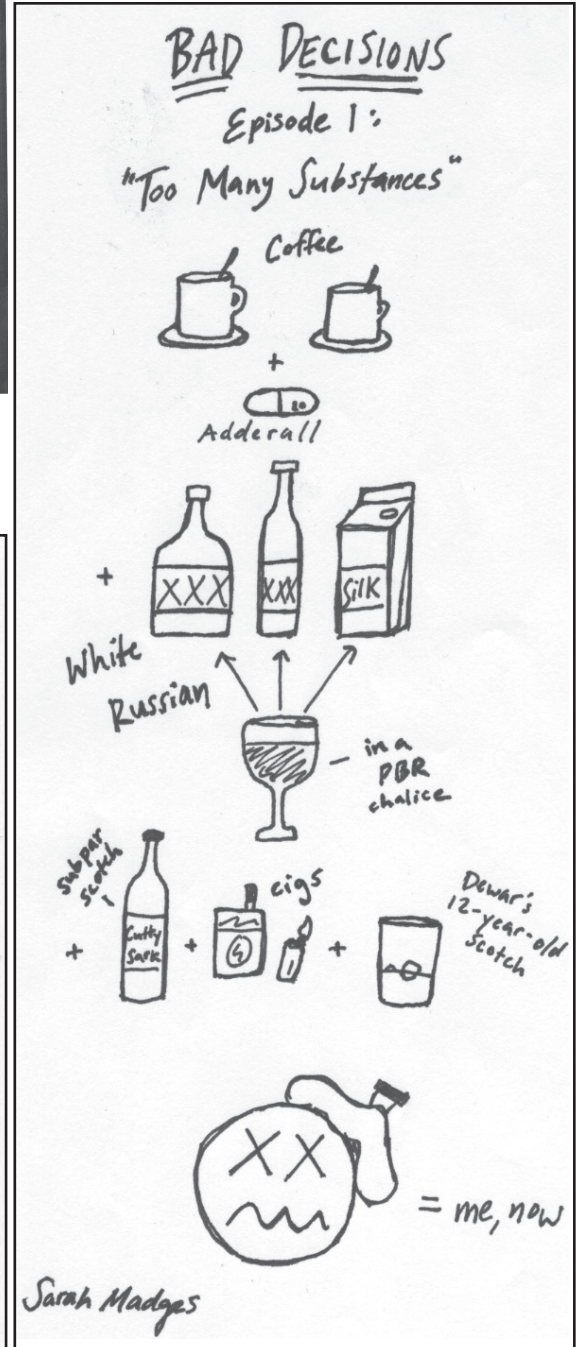 BAD DECISIONS
Episode 1:
"Too Many Substances"
Coffee
+
20
Adderall
+
XXX
XXX
Silk
White
Russian
in a
PBR
chalice
subpar
scotch
+
Cutty
Sark
+
cigs
+
Dewar's
12-year-old
scotch
XX
= me, now
Sarah Madges